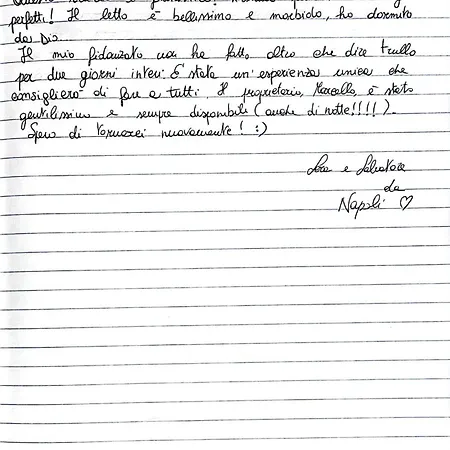 perfetti! Il letto è bellissimo e morbido, ho dormito
da Dio.
Il mio fidanzato non ha fatto altro che dire trullo
per due giorni interi. È stata un'esperienza unica che
consiglierò di fare a tutti. Il proprietario, Marcello, è stato
gentilissimo e sempre disponibile (anche di notte!!!!).
Spero di tornarci nuovamente! :)
e Salvatore
da
Napoli ♡